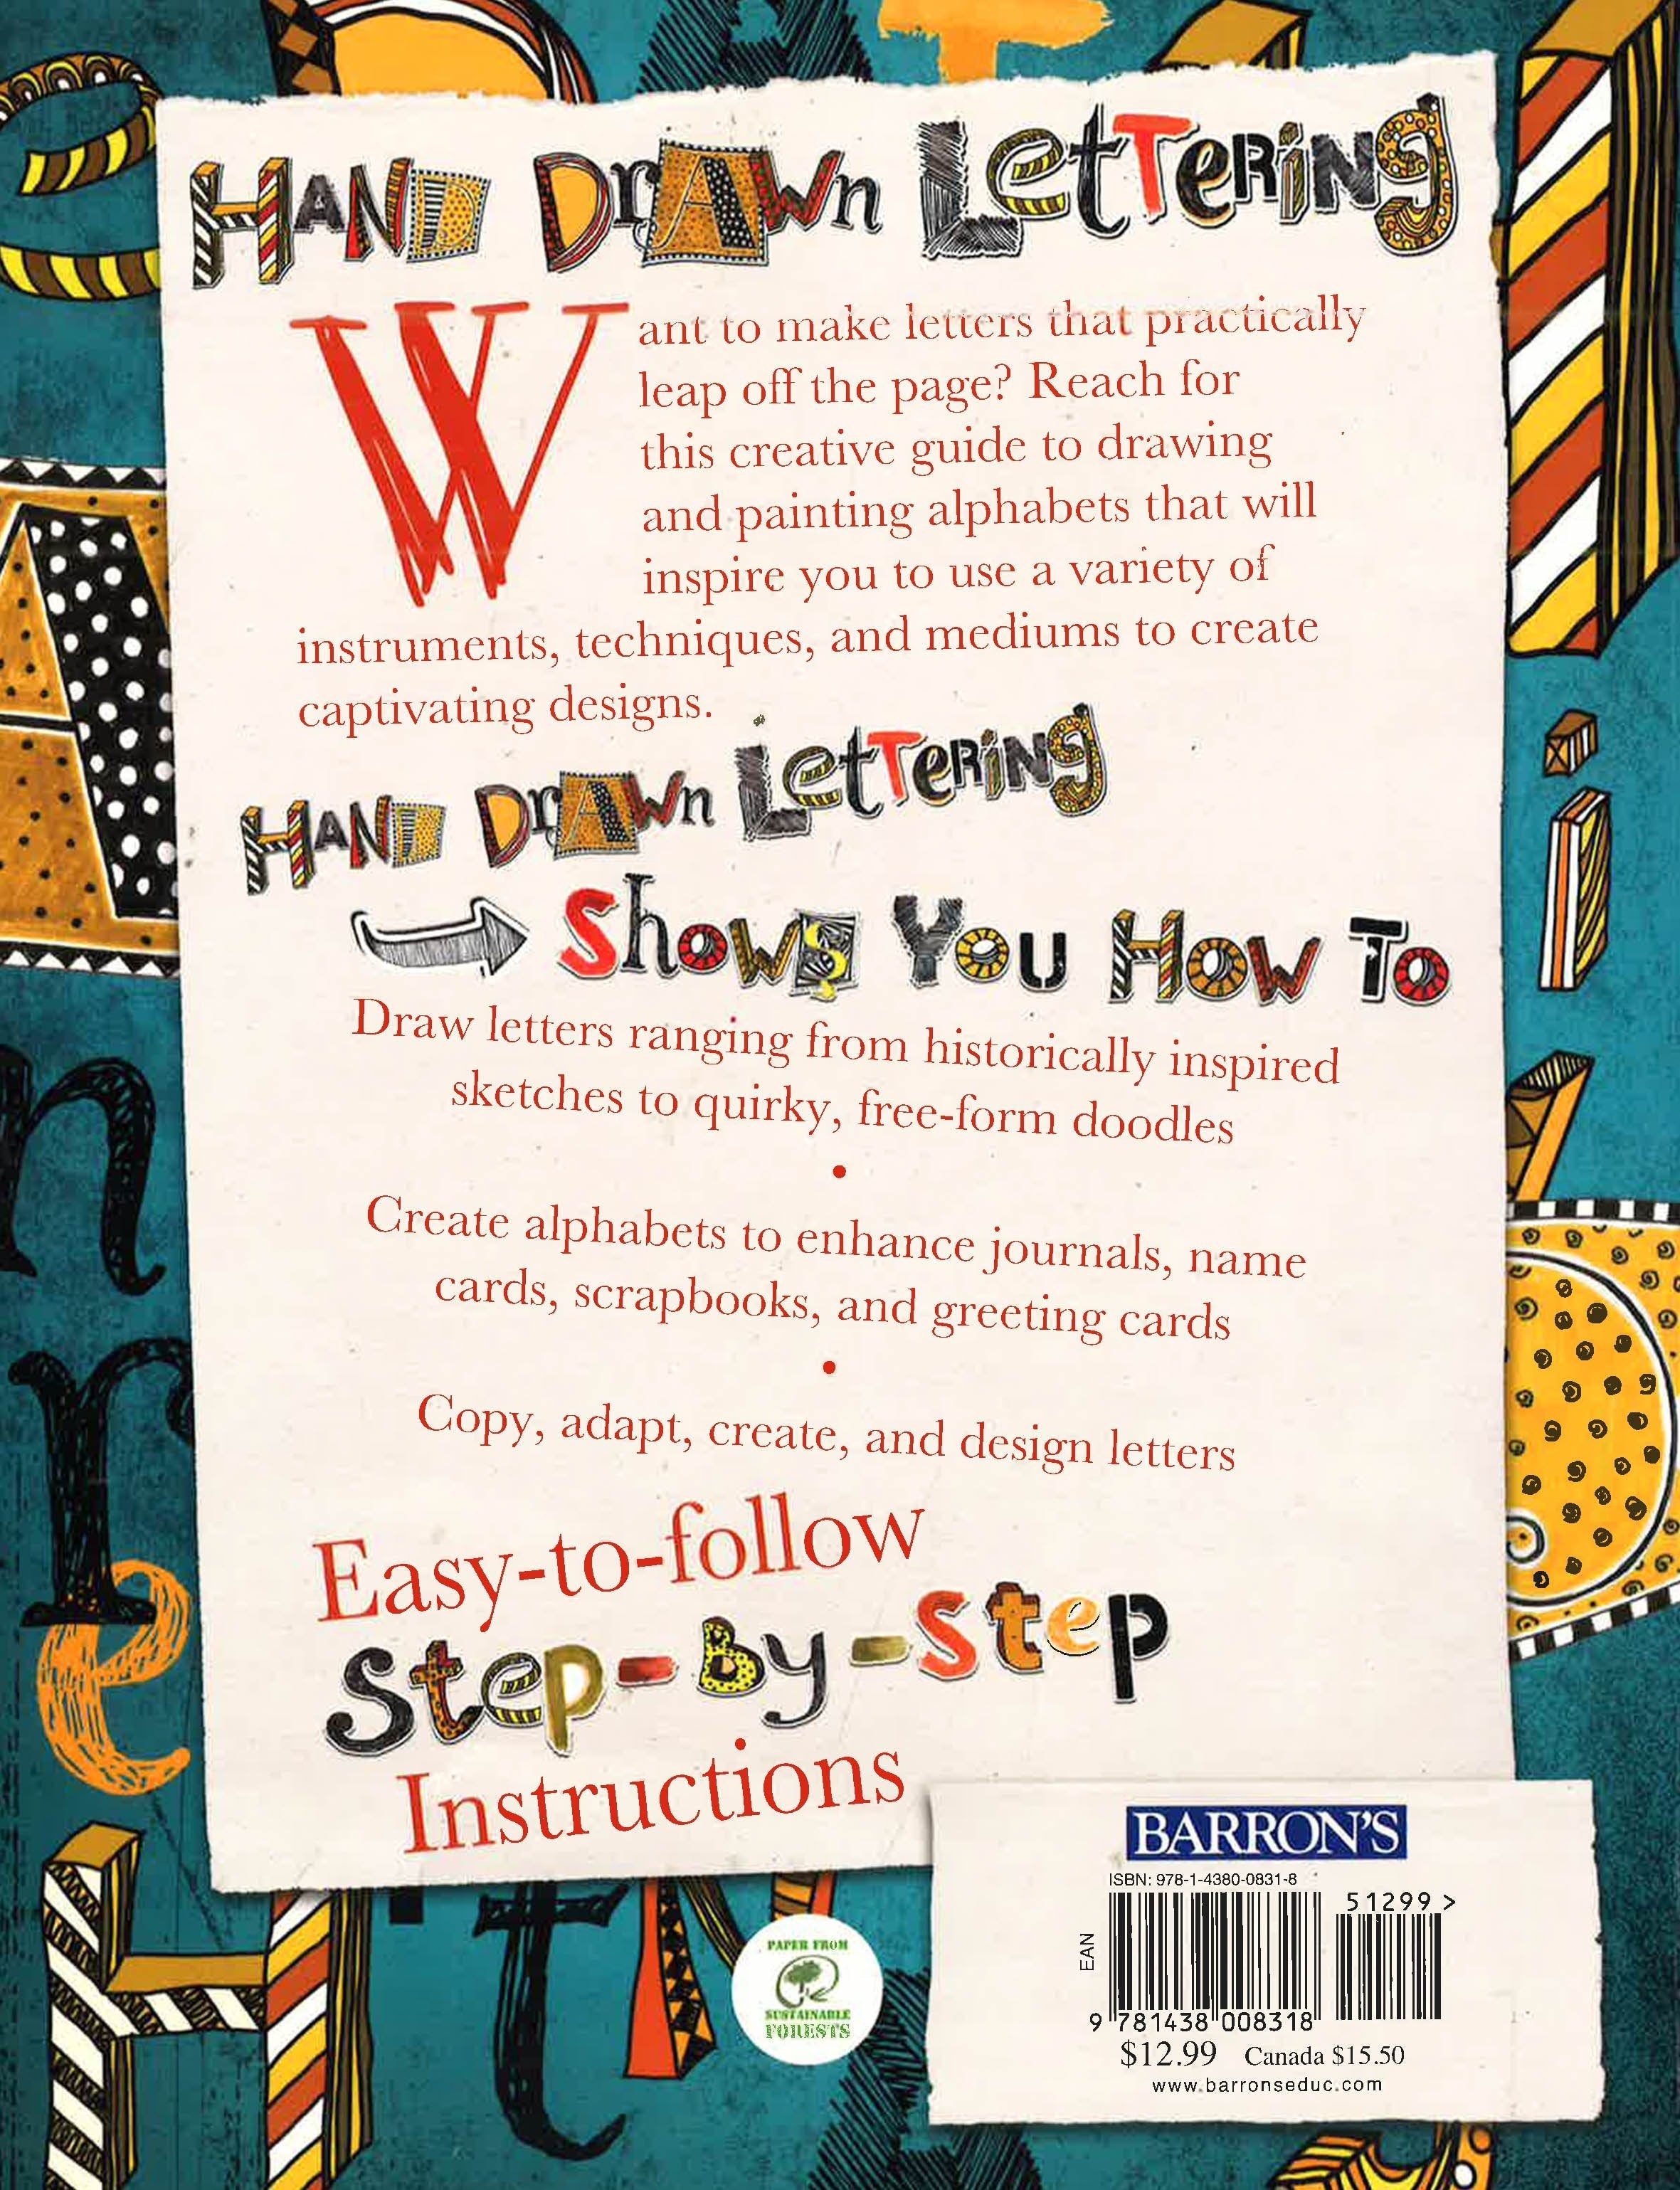 HAND DrAWn LetTeRiNg
Want to make letters that practically
leap off the page? Reach for
this creative guide to drawing
and painting alphabets that will
inspire you to use a variety of
instruments, techniques, and mediums to create
captivating designs.
HAND DrAWn LetTeRiNg
Shows You How To
Draw letters ranging from historically inspired
sketches to quirky, free-form doodles
•
Create alphabets to enhance journals, name
cards, scrapbooks, and greeting cards
•
Copy, adapt, create, and design letters
Easy-to-follow
Step-By-Step
Instructions
BARRON'S
ISBN: 978-1-4380-0831-8
51299 >
EAN
9 781438 008318
$12.99 Canada $15.50
www.barronseduc.com
PAPER FROM
SUSTAINABLE
FORESTS